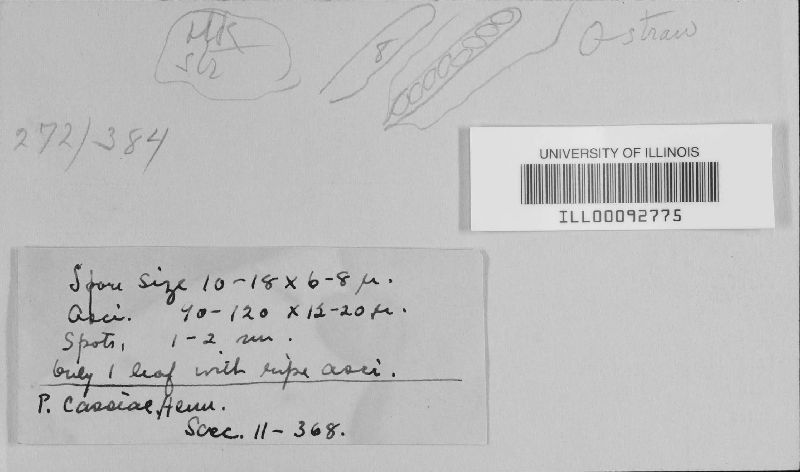 8
O straw
272/384
UNIVERSITY OF ILLINOIS
ILL00092775
Spore size 10-18 x 6-8 µ.
Asci. 90-120 x 12-20 µ.
Spots, 1-2 mm.
Only 1 leaf with ripe asci.
P. Cassiae, Henn.
Sacc. 11-368.